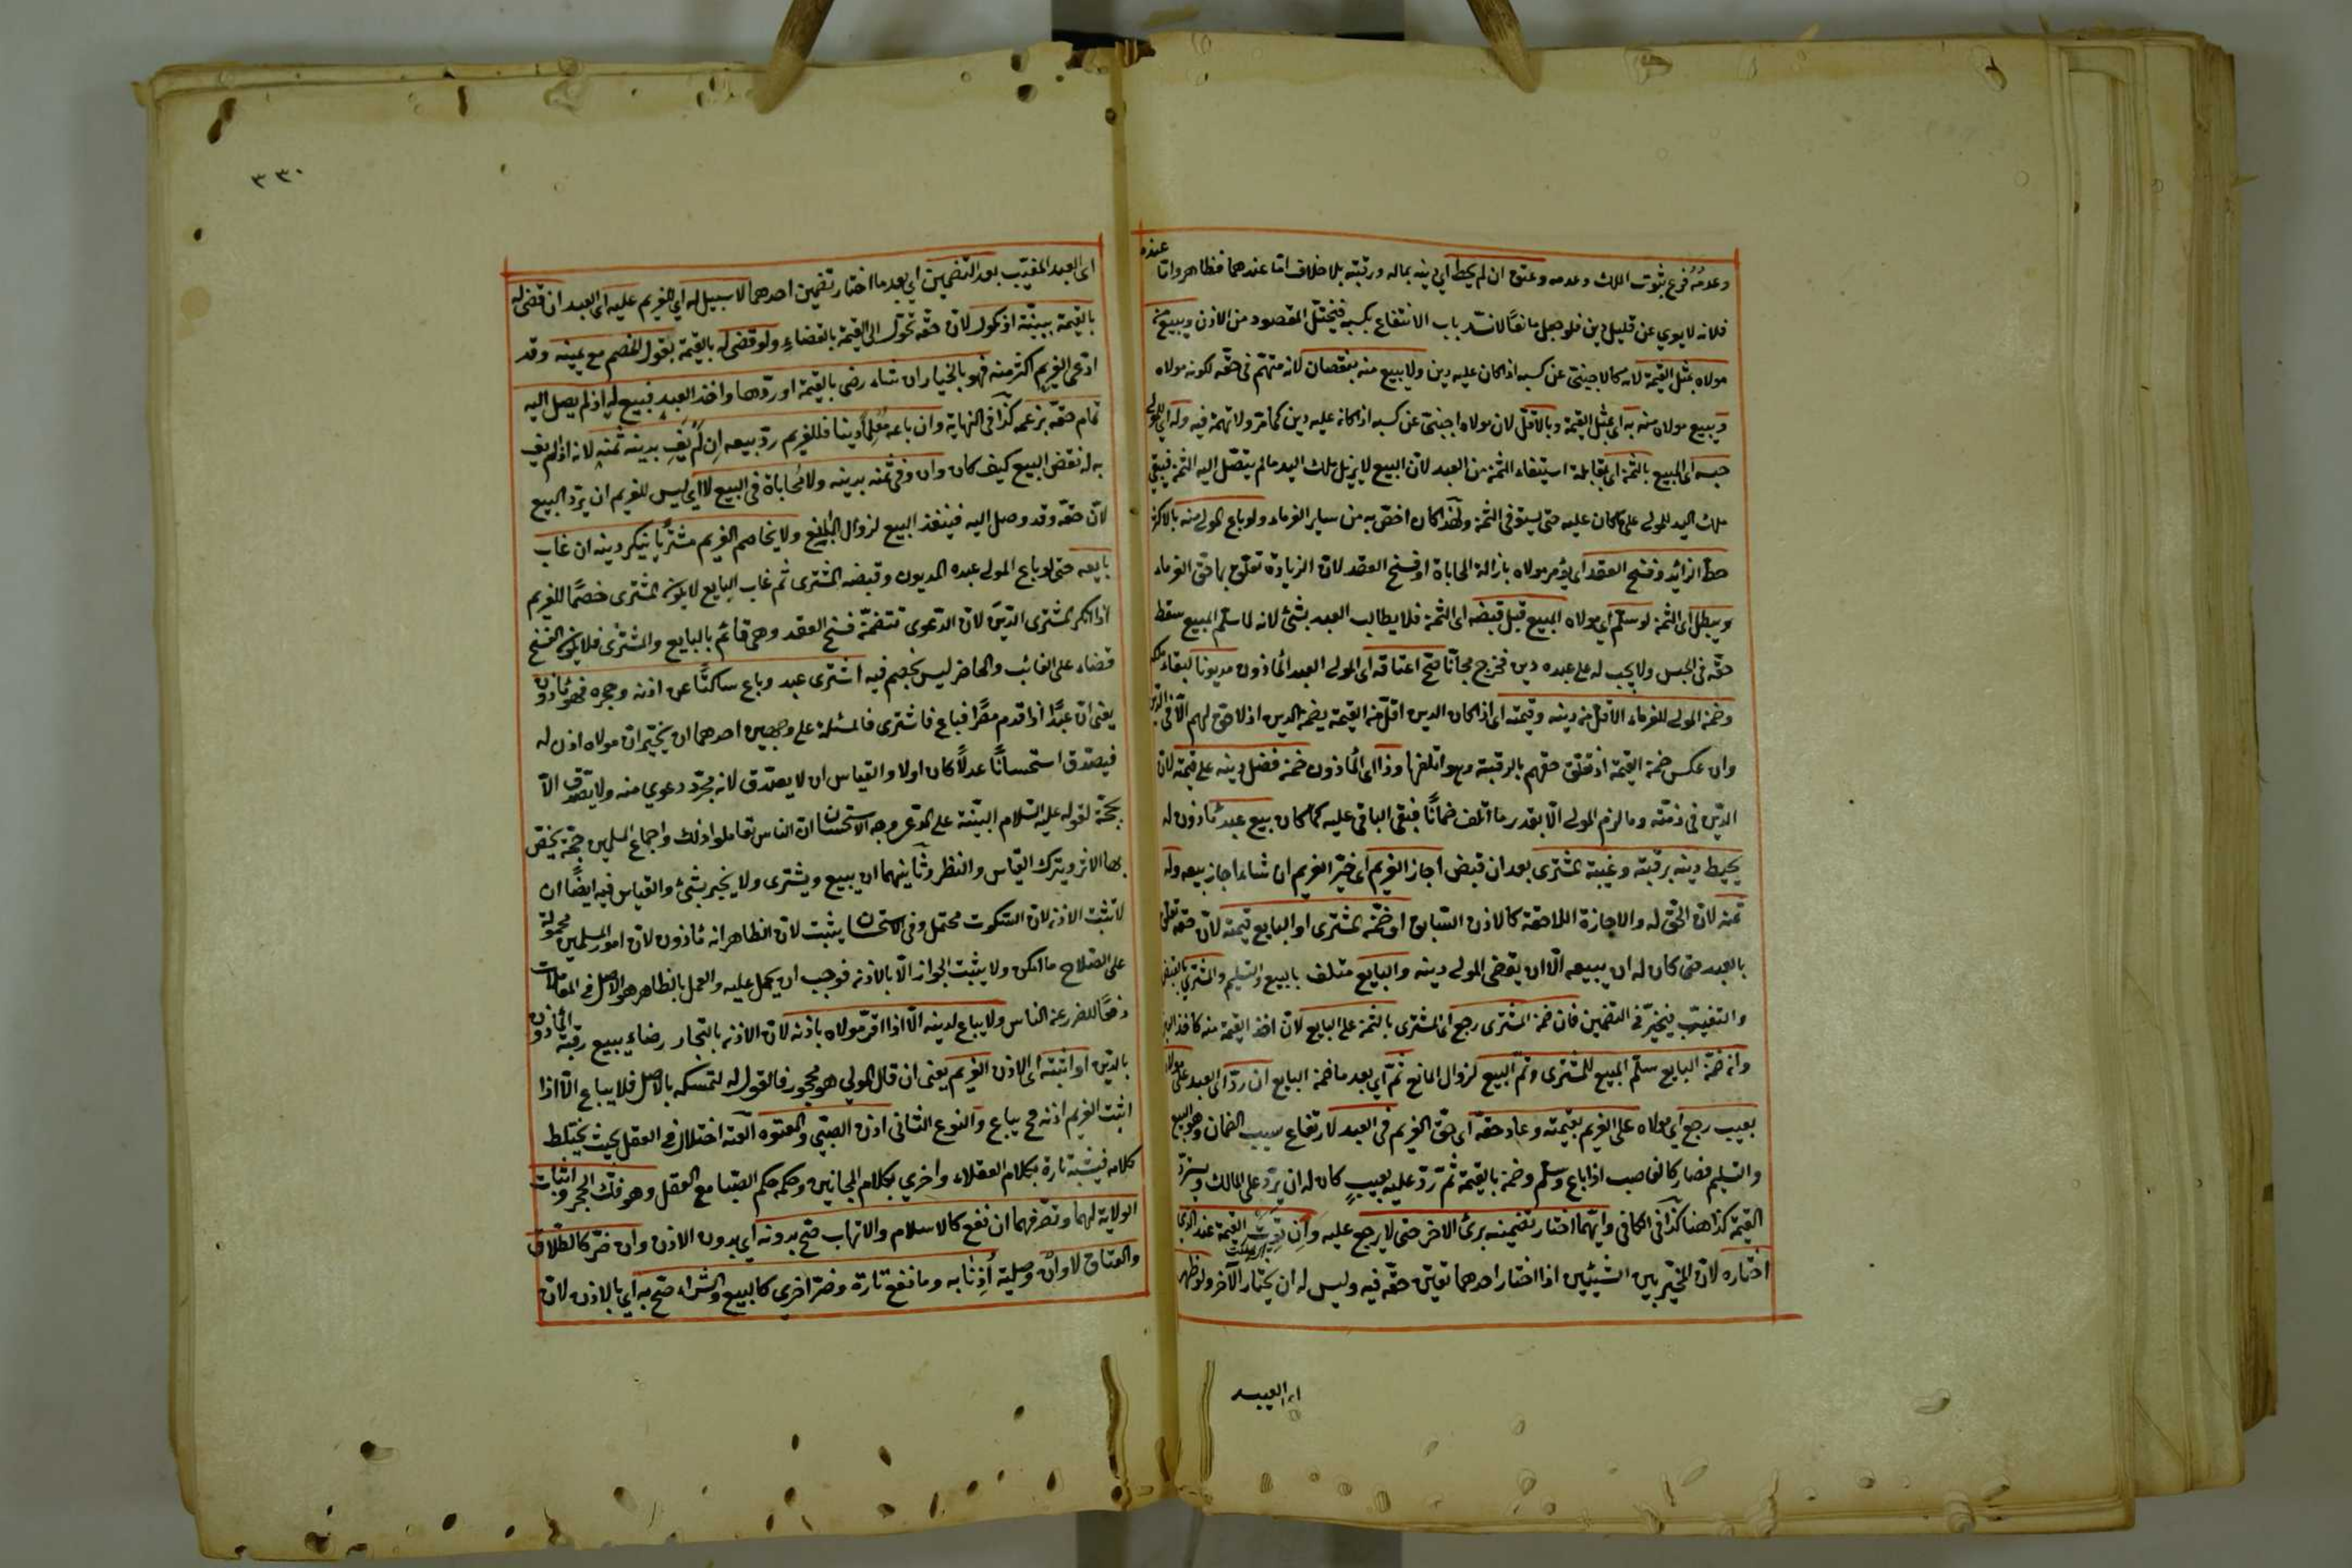 وعدمه فرع بثبوت الملك وعدمه وعتق ان لم يحط اي دينه بماله ورقبته بلا خلاف اما عندهما فظاهر واما عنده
فلانه لا يعري عن قليل دين فلو جعل مانعا لانسد باب الانتفاع بكسبه فيختل المقصود من الاذن ويبيع من
مولاه بمثل القيمة لانه كالاجنبي عن كسبه اذا كان عليه دين ولا يبيع منه بنقصان لانه متهم في حقه لكونه مولاه
ويبيع مولاه منه به اي بمثل القيمة وبالاقل لان مولاه اجنبي عن كسبه اذا كان عليه دين كما مر ولا تهمة فيه وله اي للمولى
حبسه اي المبيع بالثمن اي بمقابلة استيفاء الثمن من العبد لان البيع لا يزيل ملك اليد ما لم يتصل اليه الثمن فيبقى
ملك اليد للمولى على ما كان عليه حتى يستوفي الثمن ولهذا كان اخص به من سائر الغرماء ولو باع المولى منه بالاكثر
حط الزائد وفسخ العقد اي يؤمر مولاه بازالة المحاباة او فسخ العقد لان الزيادة تعلق بها حق الغرماء
ويبطل اي الثمن لو سلم اي مولاه المبيع قبل قبضه اي الثمن فلا يطالب العبد بشئ لانه لما سلم المبيع سقط
حقه في الحبس ولا يجب له على عبده دين فخرج مجانا صح اعتاقه اي المولى العبد المأذون مديونا لبقاء ملكه
وضمن المولى للغرماء الاقل من دينه وقيمته اي اذا كان الدين اقل من القيمة يضمن الدين اذ لا حق لهم الا في الدين
وان عكس ضمن القيمة اذ تعلق حقهم بالرقبة وهو اتلفها وذا اي المأذون ضمن فضل دينه على قيمته لان
الدين في ذمته وما لزم المولى الا بقدر ما اتلف ضمانا فبقى الباقي عليه كما كان بيع عبد مأذون له
يحيط دينه برقبته وغيبه المشتري بعد ان قبض اجاز الغريم اي خير الغريم ان شاء اجاز بيعه وله
ثمنه لان الحق له والاجازة اللاحقة كالاذن السابق او ضمن المشتري او البايع قيمته لان حقه تعلق
بالعبد حتى كان له ان يبيعه الا ان يقضى المولى دينه والبايع متلف بالبيع والتسليم والمشتري بالقبض
والتغييب فيخير في التضمين فان ضمن المشتري رجع اي المشتري بالثمن على البايع لان اخذ القيمة منه كاخذ العين
وان ضمن البايع سلم المبيع للمشتري وتم البيع لزوال المانع ثم اي بعد ما ضمن البايع ان رد اي العبد على مولاه
بعيب رجع اي مولاه على الغريم بقيمته وعاد حقه اي حق الغريم في العبد لارتفاع سبب الضمان وهو البيع
والتسليم فصار كالغاصب اذا باع وسلم وضمن بالقيمة ثم رد عليه بعيب كان له ان يرد على المالك ويسترد
القيمة كذا هنا كذا في الكافي وايهما اختار تضمينه برئ الاخر حتى لا يرجع عليه وان القيمة عند
اختاره لان المخير بين الشيئين اذا اختار احدهما تعين حقه فيه وليس له ان يختار الآخر ولو ظهر
اي العبد
٣٣٠
اي العبد المغيب بعد التضمين اي بعد ما اختار تضمين احدهما لا سبيل له اي للغريم عليه اي العبد ان قضى له
بالقيمة ببينة او نكول لان حقه تحول الى القيمة بالقضاء ولو قضى له بالقيمة بقول الخصم مع يمينه وقد
ادعى الغريم اكثر منه فهو بالخيار ان شاء رضى بالقيمة او ردها واخذ العبد فبيع له اذ لم يصل اليه
تمام حقه بزعمه كذا في النهاية وان باعه معلما دينا فللغريم رد بيعه ان لم يف بدينه ثمنه لانه اذا لم يف
به له نقض البيع كيف كان وان وفى ثمنه بدينه ولا محاباة في البيع لا اي ليس للغريم ان يرد المبيع
لان حقه وقد وصل اليه فينفذ البيع لزوال المانع ولا يخاصم الغريم مشتريا ينكر دينه ان غاب
بايعه حتى لو باع المولى عبده المديون وقبضه المشتري ثم غاب البايع لا يكون المشتري خصما للغريم
اذا انكر المشتري الدين لان الدعوى تتضمن فسخ العقد وهي قائم بالبايع والمشتري فلا يكون الفسخ
قضاء على الغائب والحاضر ليس بخصم فيه اشترى عبد وباع ساكتا عن اذنه وحجره فهو مأذون
يعنى ان عبدا اذا قدم مصرا فباع فاشترى فالمسئلة على وجهين احدهما ان يخبر ان مولاه اذن له
فيصدق استحسانا عدلا كان اولا والقياس ان لا يصدق لانه مجرد دعوى منه ولا يصدق الا
بحجة لقوله عليه السلام البينة على المدعى وجه الاستحسان ان الناس تعاملوا ذلك واجماع المسلمين حجة يخص
بها الاثر ويترك القياس والنظر وثانيهما ان يبيع ويشترى ولا يخبر بشئ والقياس فيه ايضا ان
لا يثبت الاذن لان السكوت محتمل وفي الاستحسان يثبت لان الظاهر انه مأذون لان امور المسلمين محمولة
على الصلاح ما امكن ولا يثبت الجواز الا بالاذن فوجب ان يحمل عليه والعمل بالظاهر هو الاصل في المعاملات
دفعا للضرر عن الناس ولا يباع لدينه الا اذا اقر مولاه باذنه لان الاذن بالتجار رضاء ببيع رقبة المأذون
بالدين او اثبته اي الاذن الغريم يعنى ان قال المولى هو محجور فالقول له لتمسكه بالاصل فلا يباع الا اذا
اثبت الغريم اذنه ح يباع والنوع الثاني اذن الصبي والمعتوه العته اختلال في العقل بحيث يختلط
كلامه فيشبه تارة بكلام العقلاء واخرى بكلام المجانين وحكمه حكم الصبا مع العقل وهو فك الحجر واثبات
الولاية لهما وتصرفهما ان نفع كالاسلام والاتهاب صح بدونه اي بدون الاذن وان ضر كالطلاق
والعتاق لا وان وصلية أذنا به وما نفع تارة وضر اخرى كالبيع والشراء صح به اي بالاذن لان